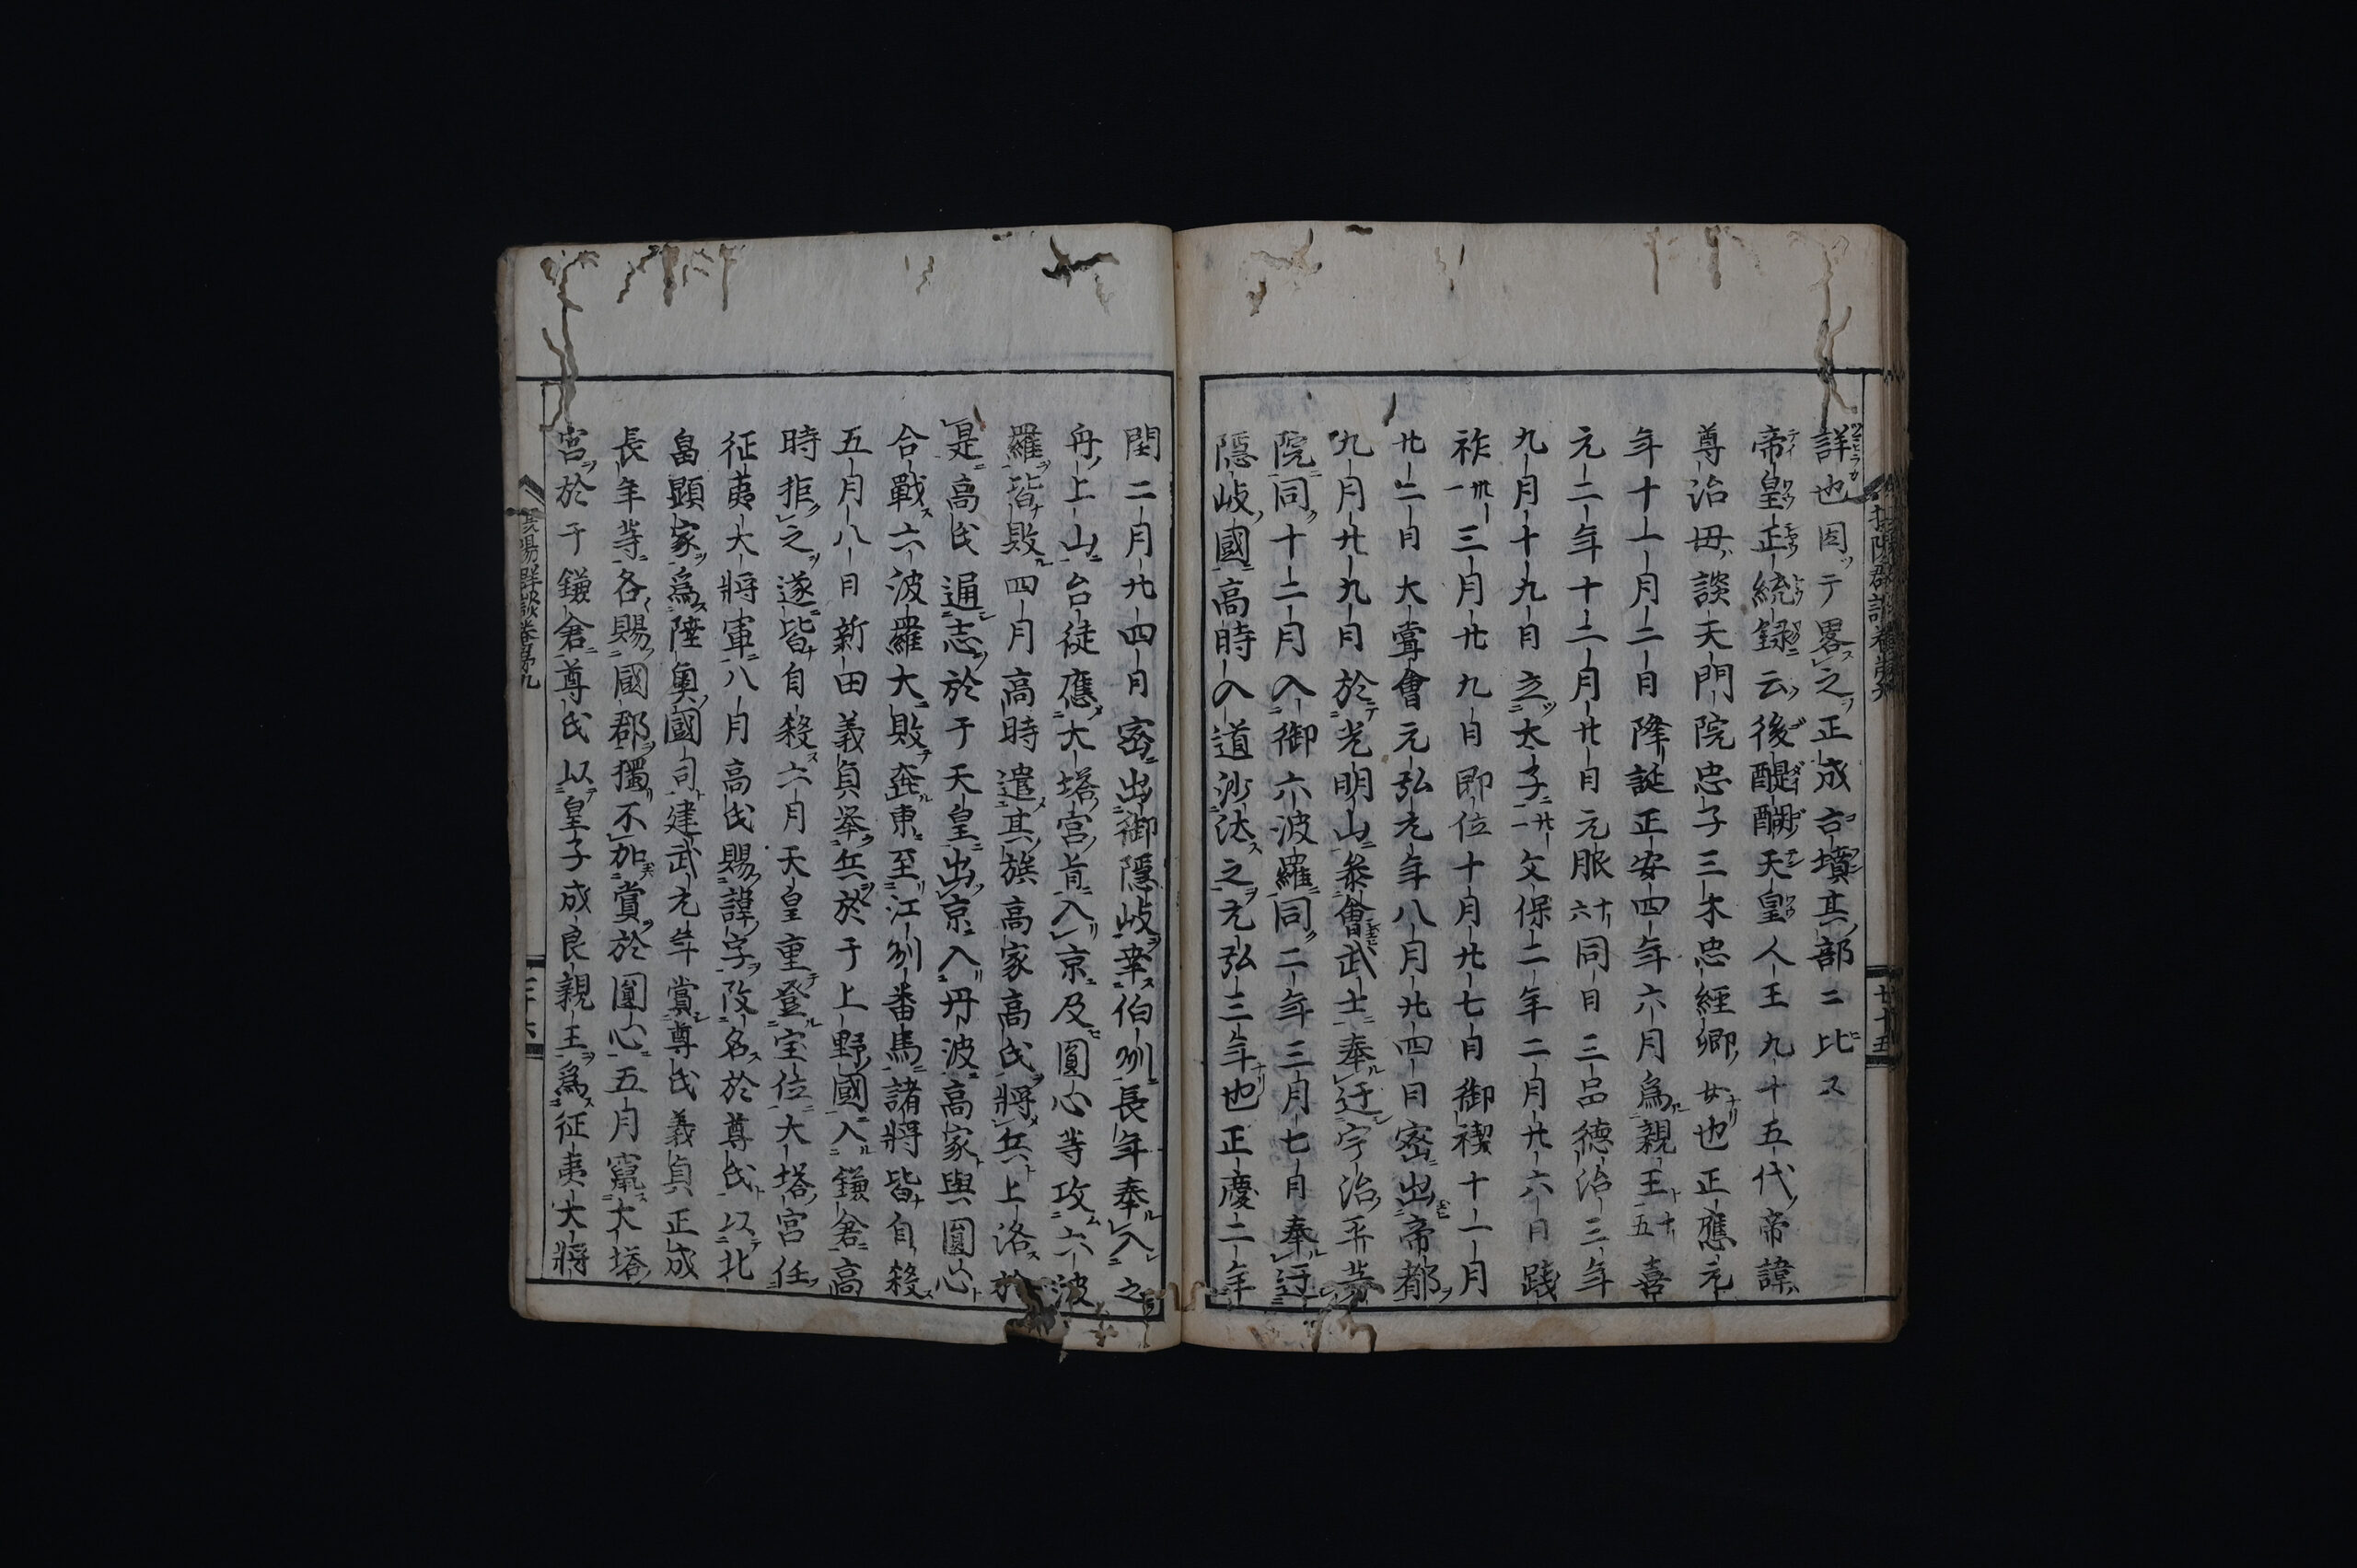 詳也因テ畧之正成古墳其部ニ比ス
帝皇正統録云後醍醐天皇人王九十五代帝諱
尊治母談天門院忠子三木忠經卿女也正應元
年十一月二日降誕正安四年六月爲親王十五嘉
元二年十二月廿日元服十六同日三品德治三年
九月十九日立太子廿一文保二年二月廿六日踐
祚卅一三月廿九日即位十月廿七日御禊十一月
廿二日大甞會元弘元年八月廿四日密出帝都
九月廿九月於光明山參會武士奉迂宇治平等
院同十二月入御六波羅同二年三月七日奉迁
隱岐國高時入道沙汰之元弘三年也正慶二年
閏二月廿四日密出御隱岐幸伯州長年奉入之
舟上山台徒應大塔宮肯入京及圓心等攻六波
羅皆敗四月高時遣其族高家高氏將兵上洛於
是高氏通志於于天皇出京入丹波高家與圓心
合戰六波羅大敗奔東至江州番馬諸將皆自殺
五月八日新田義貞举兵於于上野國入鎌倉高
時拒之遂皆自殺六月天皇重登宝位大塔宮任
征夷大將軍八月高氏賜諱字改名於尊氏以北
畠顕家爲陸奥國司建武元年賞尊氏義貞正成
長年等各賜國郡獨不加賞於圓心五月竄大塔
宮於于鎌倉尊氏以皇子成良親王爲征夷大將
陽群談巻第九
三十六